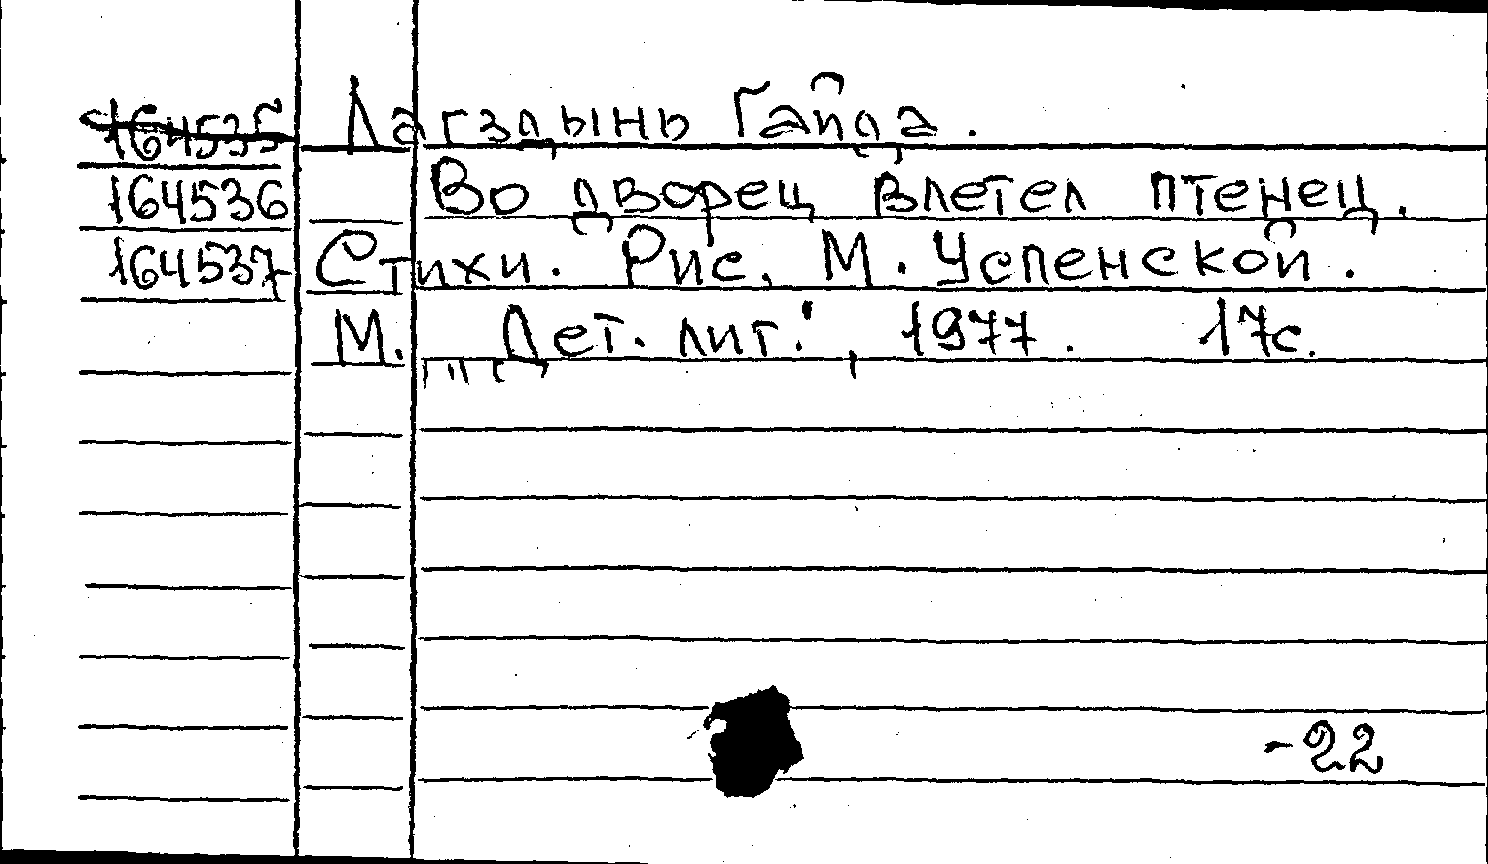 164535 Лагздынь Гайда.
164536 Во дворец влетел птенец.
164537 Стихи. Рис. М. Успенской.
М. „Дет. лит.", 1977. 17с.
-22